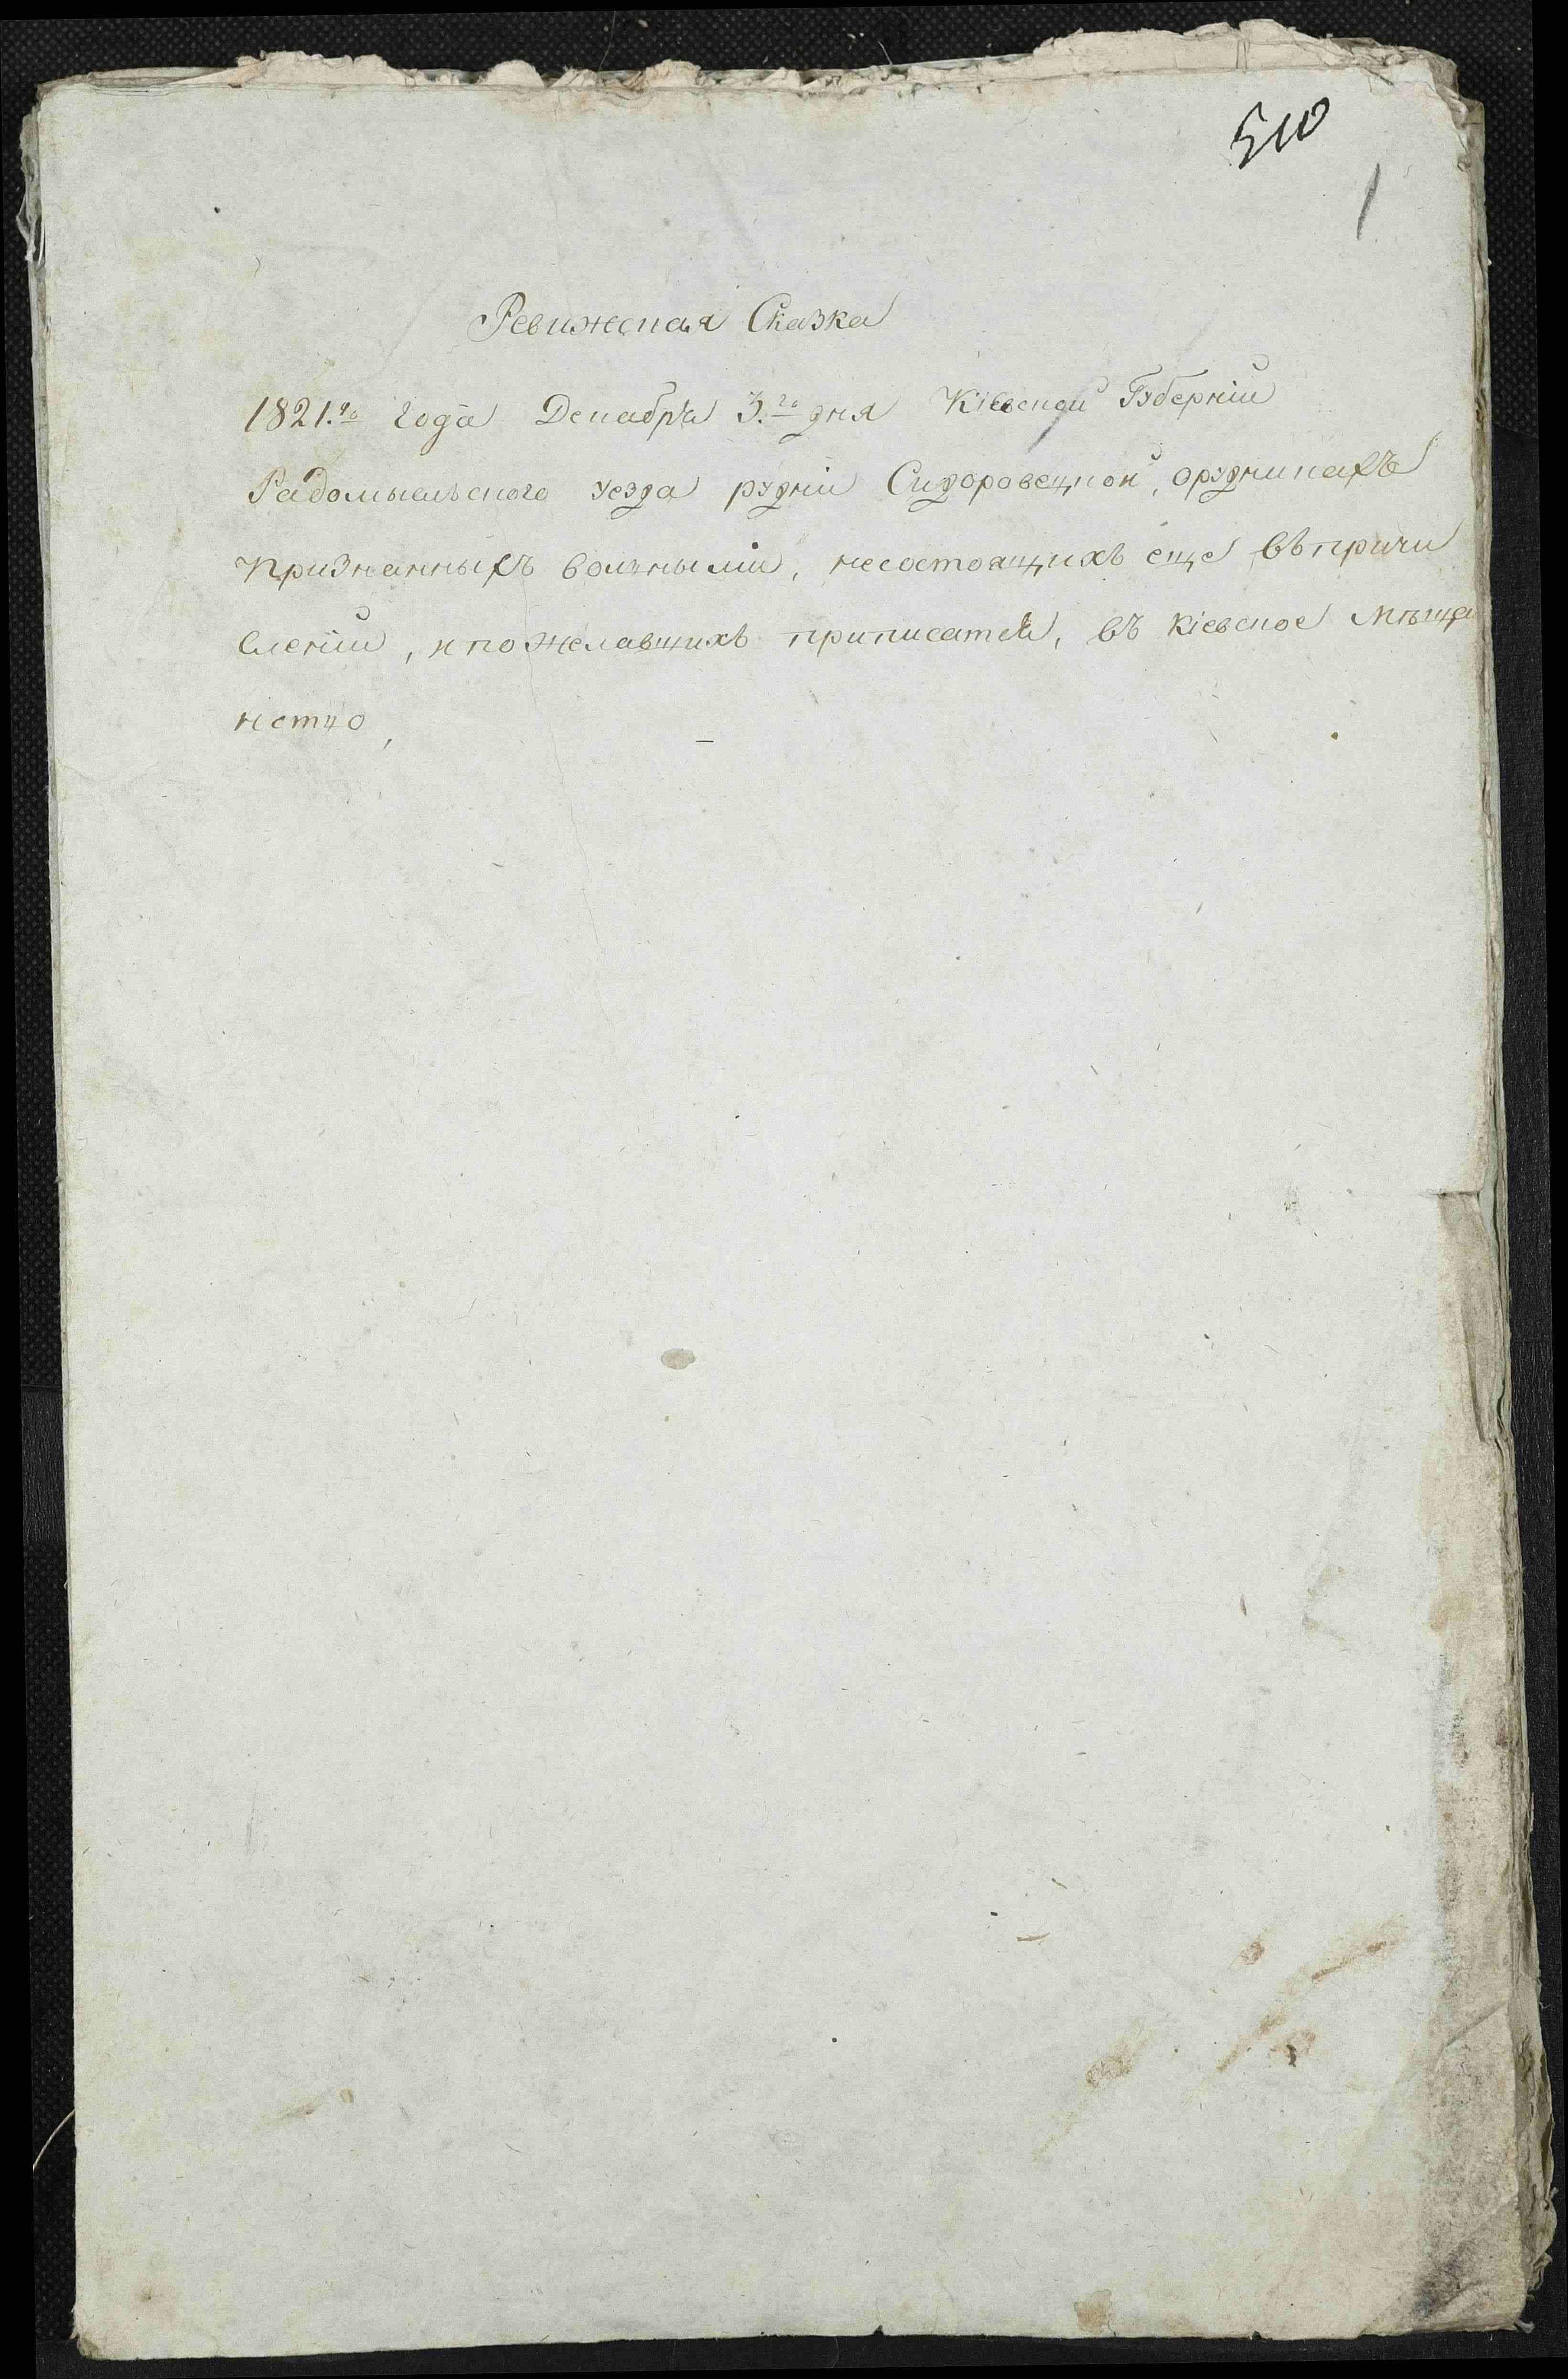 510
1
Ревижская Сказка
1821.го года Декабря 3.го дня Кіевской Губерніи
Радомысльского уезда рудни Сидоровецкой, орудникахъ
признанныхъ волными, несостоящихъ еще въпричи
сленіи, ипожелавшихъ приписатся, въ кіевское мѣща
нство,